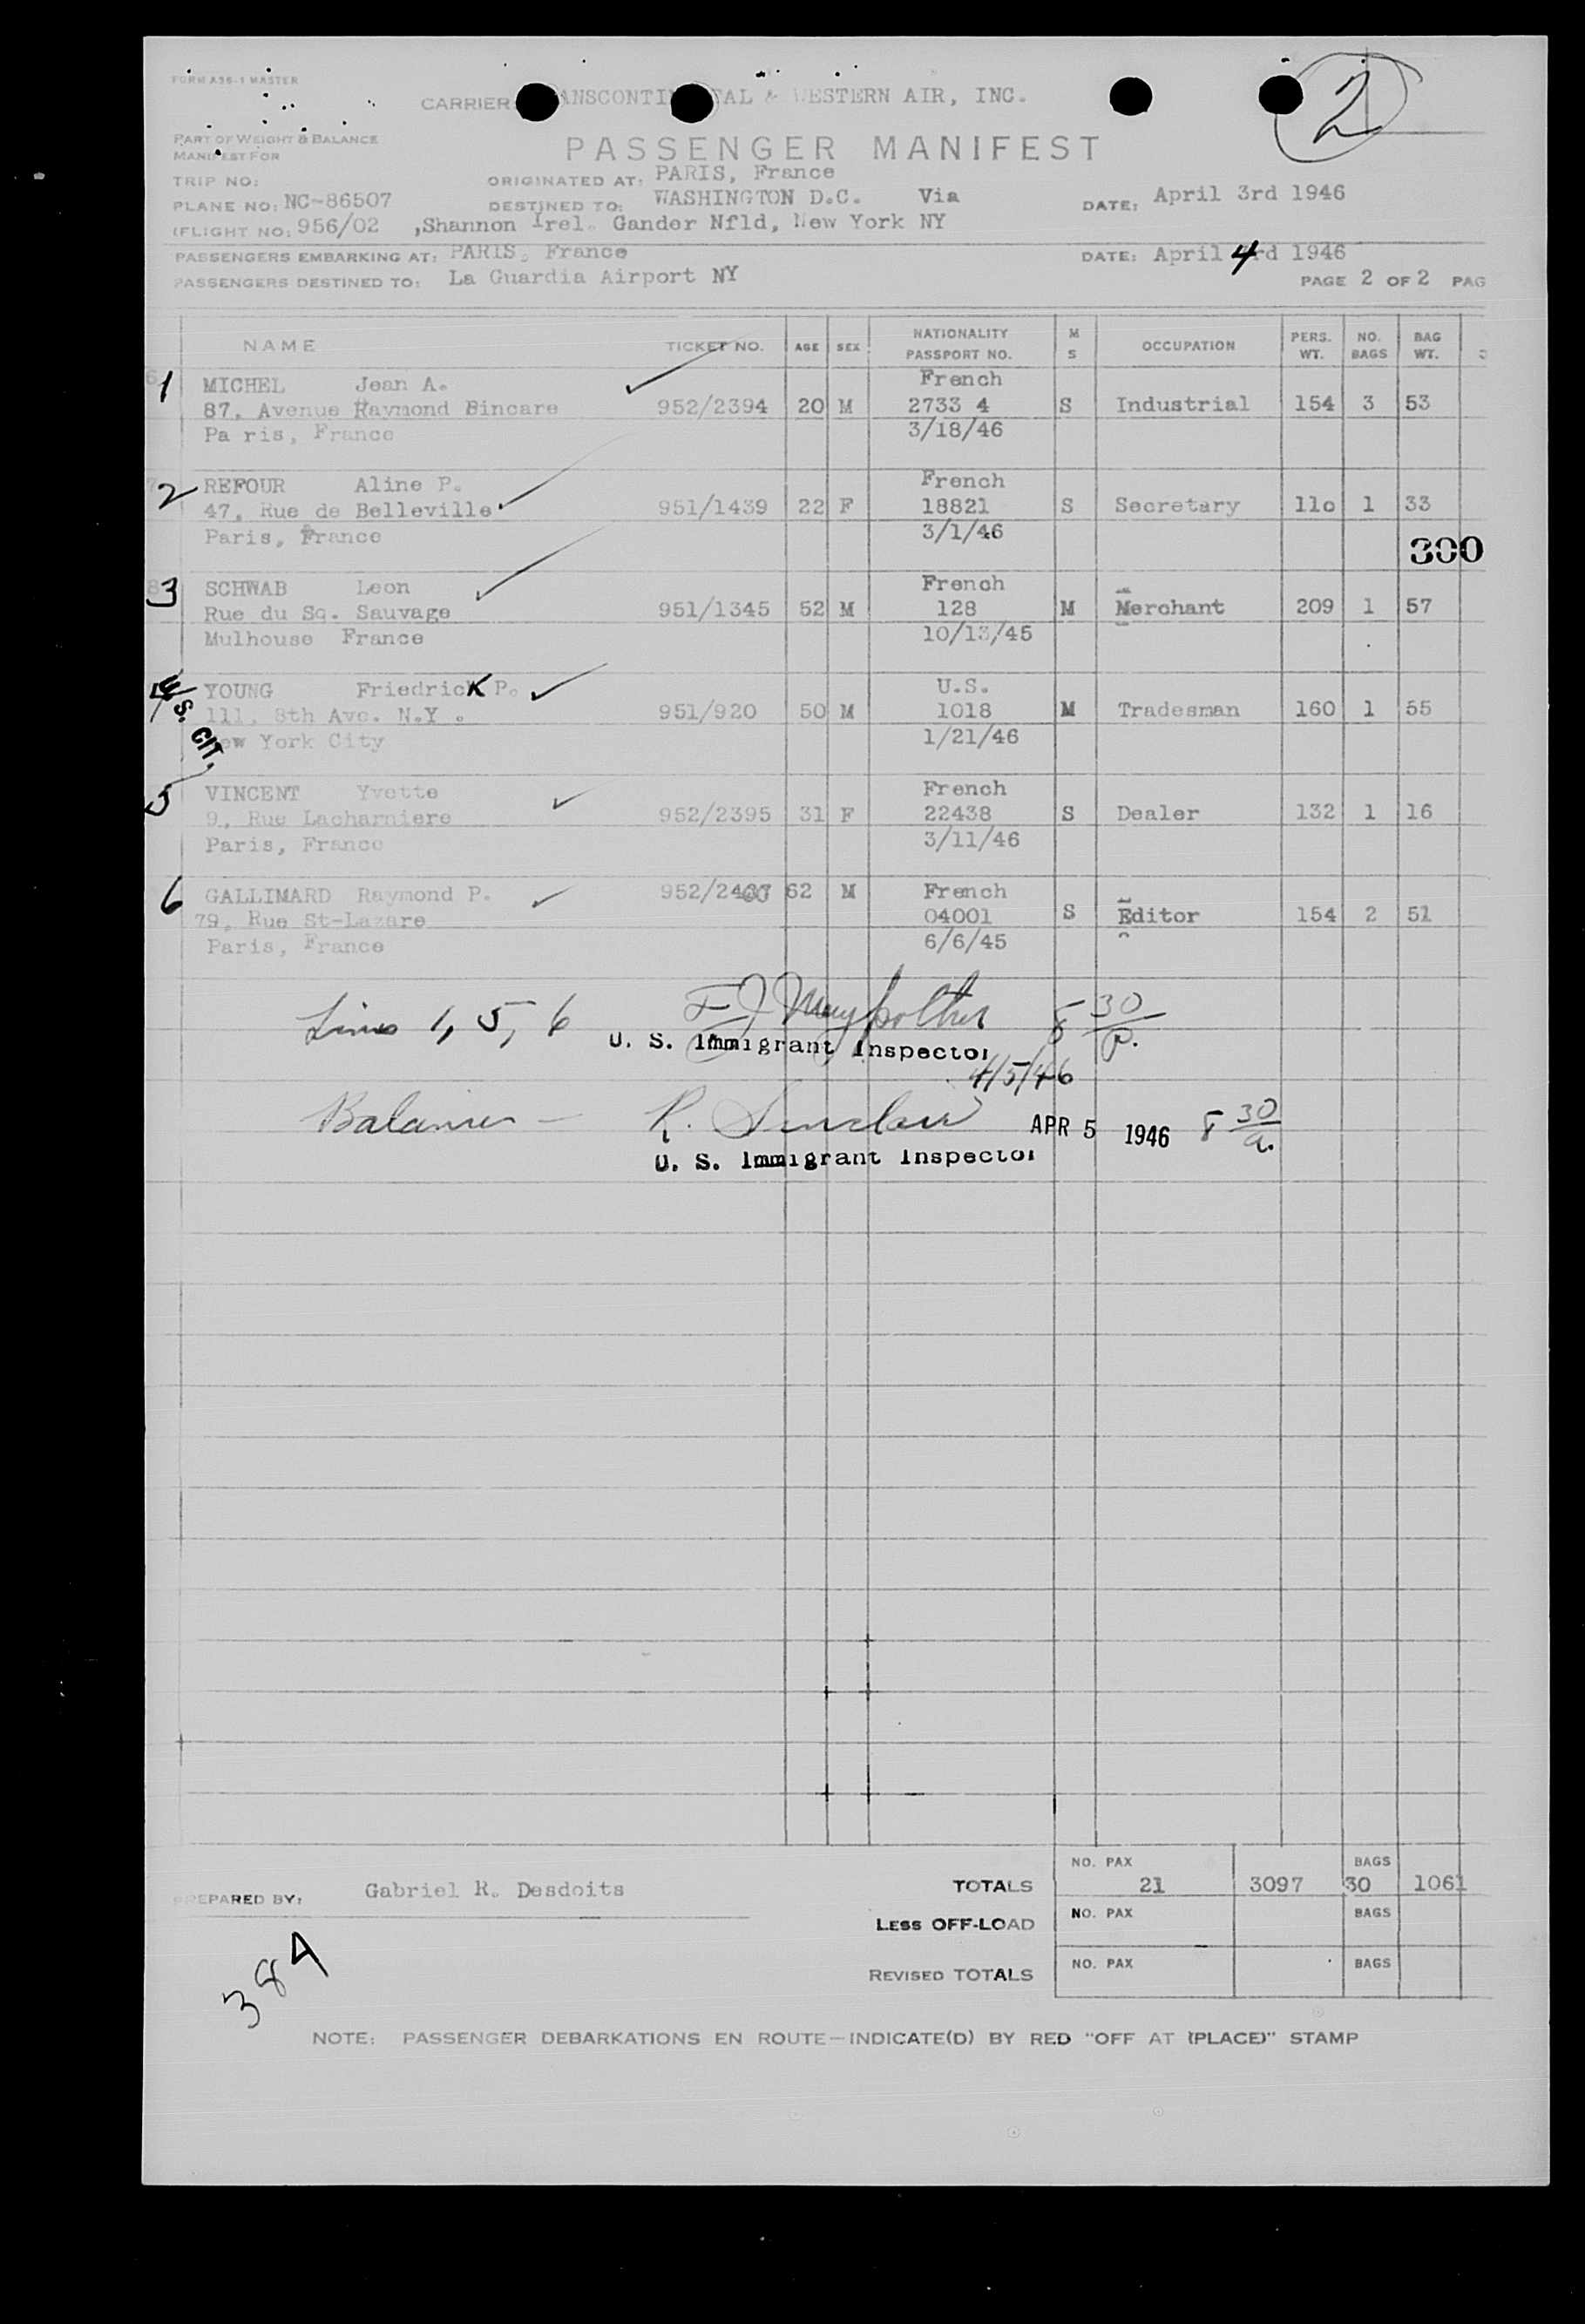 FORM A36-1 MASTER
CARRIER: ANSCONTI TAL & WESTERN AIR, INC.
2
PART OF WEIGHT & BALANCE
MANIFEST FOR
PASSENGER MANIFEST
TRIP NO: ORIGINATED AT: PARIS, France
PLANE NO: NC-86507 DESTINED TO: WASHINGTON D.C. Via DATE: April 3rd 1946
(FLIGHT NO: 956/02 ,Shannon Irel. Gander Nfld, New York NY
PASSENGERS EMBARKING AT: PARIS, France DATE: April 4rd 1946
PASSENGERS DESTINED TO: La Guardia Airport NY PAGE 2 OF 2 PAG
NAME TICKET NO. AGE SEX NATIONALITY PASSPORT NO. M S OCCUPATION PERS. WT. NO. BAGS BAG WT.
1 MICHEL Jean A. French
87, Avenue Raymond Bincare 952/2394 20 M 2733 4 S Industrial 154 3 53
Pa ris, France 3/18/46
2 REFOUR Aline P. French
47, Rue de Belleville 951/1439 22 F 18821 S Secretary 11o 1 33
Paris, France 3/1/46
300
3 SCHWAB Leon French
Rue du Sq. Sauvage 951/1345 52 M 128 M Merchant 209 1 57
Mulhouse France 10/13/45
4 U.S. CIT. YOUNG FriedricK P. U.S.
111, 8th Ave. N.Y . 951/920 50 M 1018 M Tradesman 160 1 55
New York City 1/21/46
5 VINCENT Yvette French
9, Rue Lacharniere 952/2395 31 F 22438 S Dealer 132 1 16
Paris, France 3/11/46
6 GALLIMARD Raymond P. 62 M French
79, Rue St-Lazare 04001 S Editor 154 2 51
Paris, France 6/6/45
Lines 1, 5, 6 F J 8 30/p.
U. S. Immigrant Inspector
4/5/46
Balance — R. Sinclair APR 5 1946 8 30/a.
U. S. Immigrant Inspector
NO. PAX BAGS
PREPARED BY: Gabriel R. Desdoits TOTALS 21 3097 30 1061
LESS OFF-LOAD NO. PAX BAGS
REVISED TOTALS NO. PAX BAGS
384
NOTE: PASSENGER DEBARKATIONS EN ROUTE—INDICATE(D) BY RED "OFF AT (PLACE)" STAMP